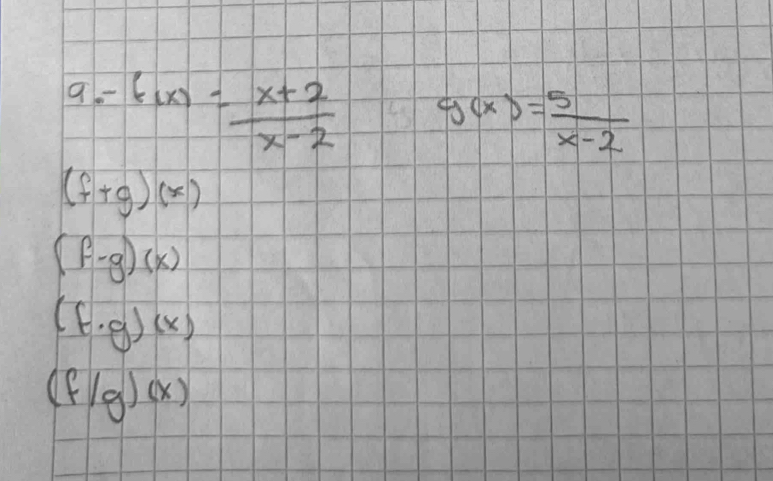 a.- f(x) = x+2/x-2 g(x) = 5/x-2
(f+g)(x)
(f-g)(x)
(f·g)(x)
(f/g)(x)